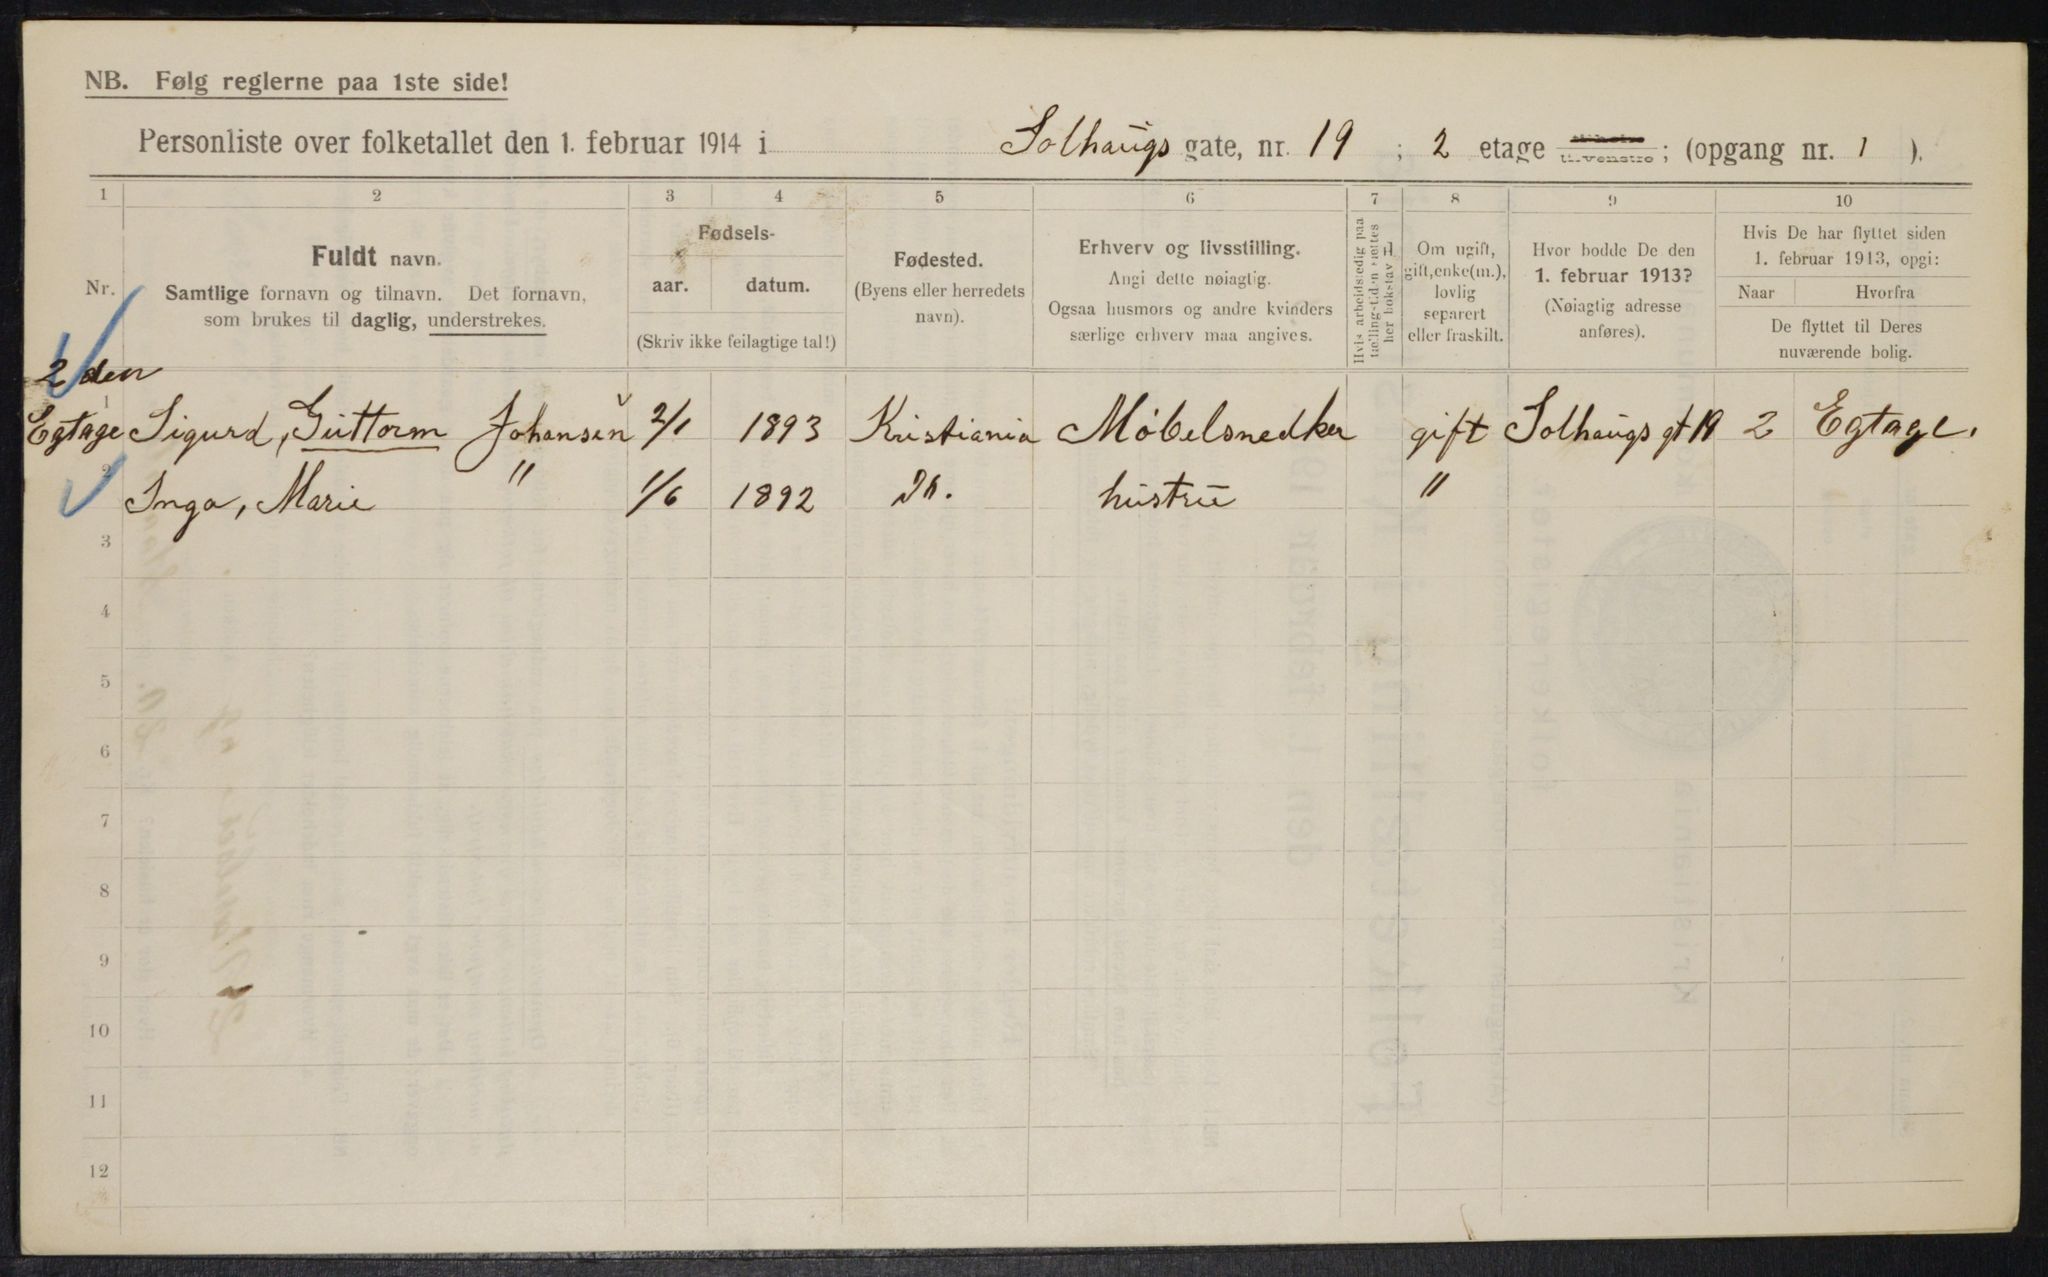 NB. Følg reglerne paa 1ste side!
Personliste over folketallet den 1. februar 1914 i Solhaugs gate, nr. 19 ; 2 etage tilvenstre; (opgang nr. 1 ).
1 2 3 4 5 6 7 8 9 10
Nr.
Fuldt navn.
Samtlige fornavn og tilnavn. Det fornavn,
som brukes til daglig, understrekes.
Fødsels-
aar. datum.
(Skriv ikke feilagtige tal!)
Fødested.
(Byens eller herredets
navn).
Erhverv og livsstilling.
Angi dette nøiagtig.
Ogsaa husmors og andre kvinders
særlige erhverv maa angives.
Hvis arbeidsledig paa
tællingstiden sættes
her bokstav l
Om ugift,
gift, enke(m.),
lovlig
separert
eller fraskilt.
Hvor bodde De den
1. februar 1913?
(Nøiagtig adresse
anføres).
Hvis De har flyttet siden
1. februar 1913, opgi:
Naar Hvorfra
De flyttet til Deres
nuværende bolig.
2 den
1
Egtage Sigurd, Guttorm Johansen 2/1 1893 Kristiania Møbelsnedker gift Solhaugs gt 19 2 Egtage.
2
Inga, Marie " 1/6 1892 Do. hustru "
3
4
5
6
7
8
9
10
11
12